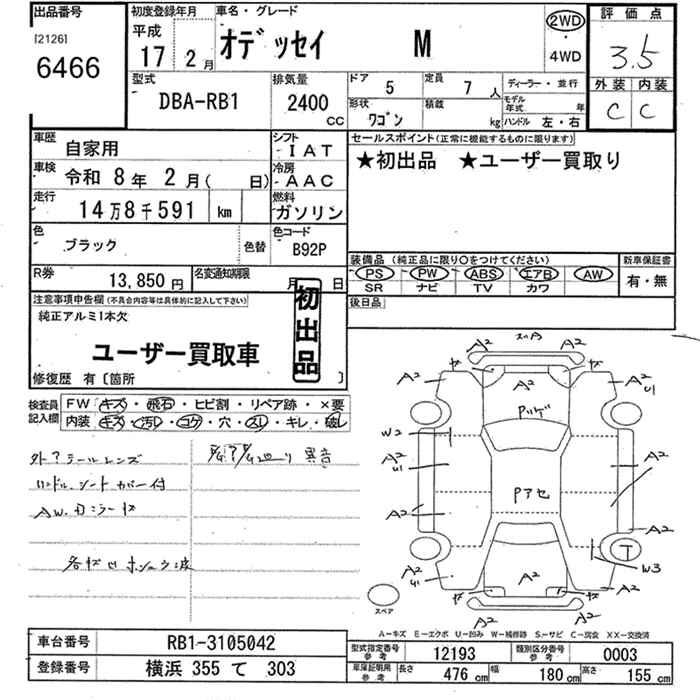 出品番号
[2126]
6466
初度登録年月
平成
17 2月
車名・グレード
オデッセイ M
2WD
4WD
評価点
3.5
外装 内装
C C
型式
DBA-RB1
排気量
2400
cc
ドア 5
定員 7 人
形状 ワゴン
積載 kg
ディーラー・並行
モデル年式 年
ハンドル 左・右
車歴 自家用
シフト IAT
車検 令和 8年 2月( 日)
冷房 AAC
走行 14万8千591 km
燃料 ガソリン
色 ブラック 色替
色コード B92P
R券 13,850円
名変通知期限 月 日
セールスポイント(正常に機能するものに限ります)
★初出品 ★ユーザー買取り
装備品 (純正品に限り○をつけてください)
新車保証書
PS PW ABS エアB AW
SR ナビ TV カワ
有・無
後日品
注意事項申告欄(不具合内容等は具体的に記入して下さい)
純正アルミ1本欠
初出品
ユーザー買取車
修復歴 有〔箇所 〕
検査員記入欄
FW キズ・飛石・ヒビ割・リペア跡・×要
内装 キズ・汚レ・コゲ・穴・スレ・キレ・破レ
テールレンズ
ハンドル、シートカバー付
異音
A2 A2
A2 A2 U1
W2
A2 U1
A2
A2
A2
W3
A2 U1
A2
A2
A2
T
スペア
A-キズ E-エクボ U-凹み W-補修跡 S-サビ C-腐食 XX-交換済
車台番号 RB1-3105042
登録番号 横浜 355 て 303
型式指定番号 参考 12193
類別区分番号 参考 0003
車庫証明用 参考 長さ 476 cm 幅 180 cm 高さ 155 cm